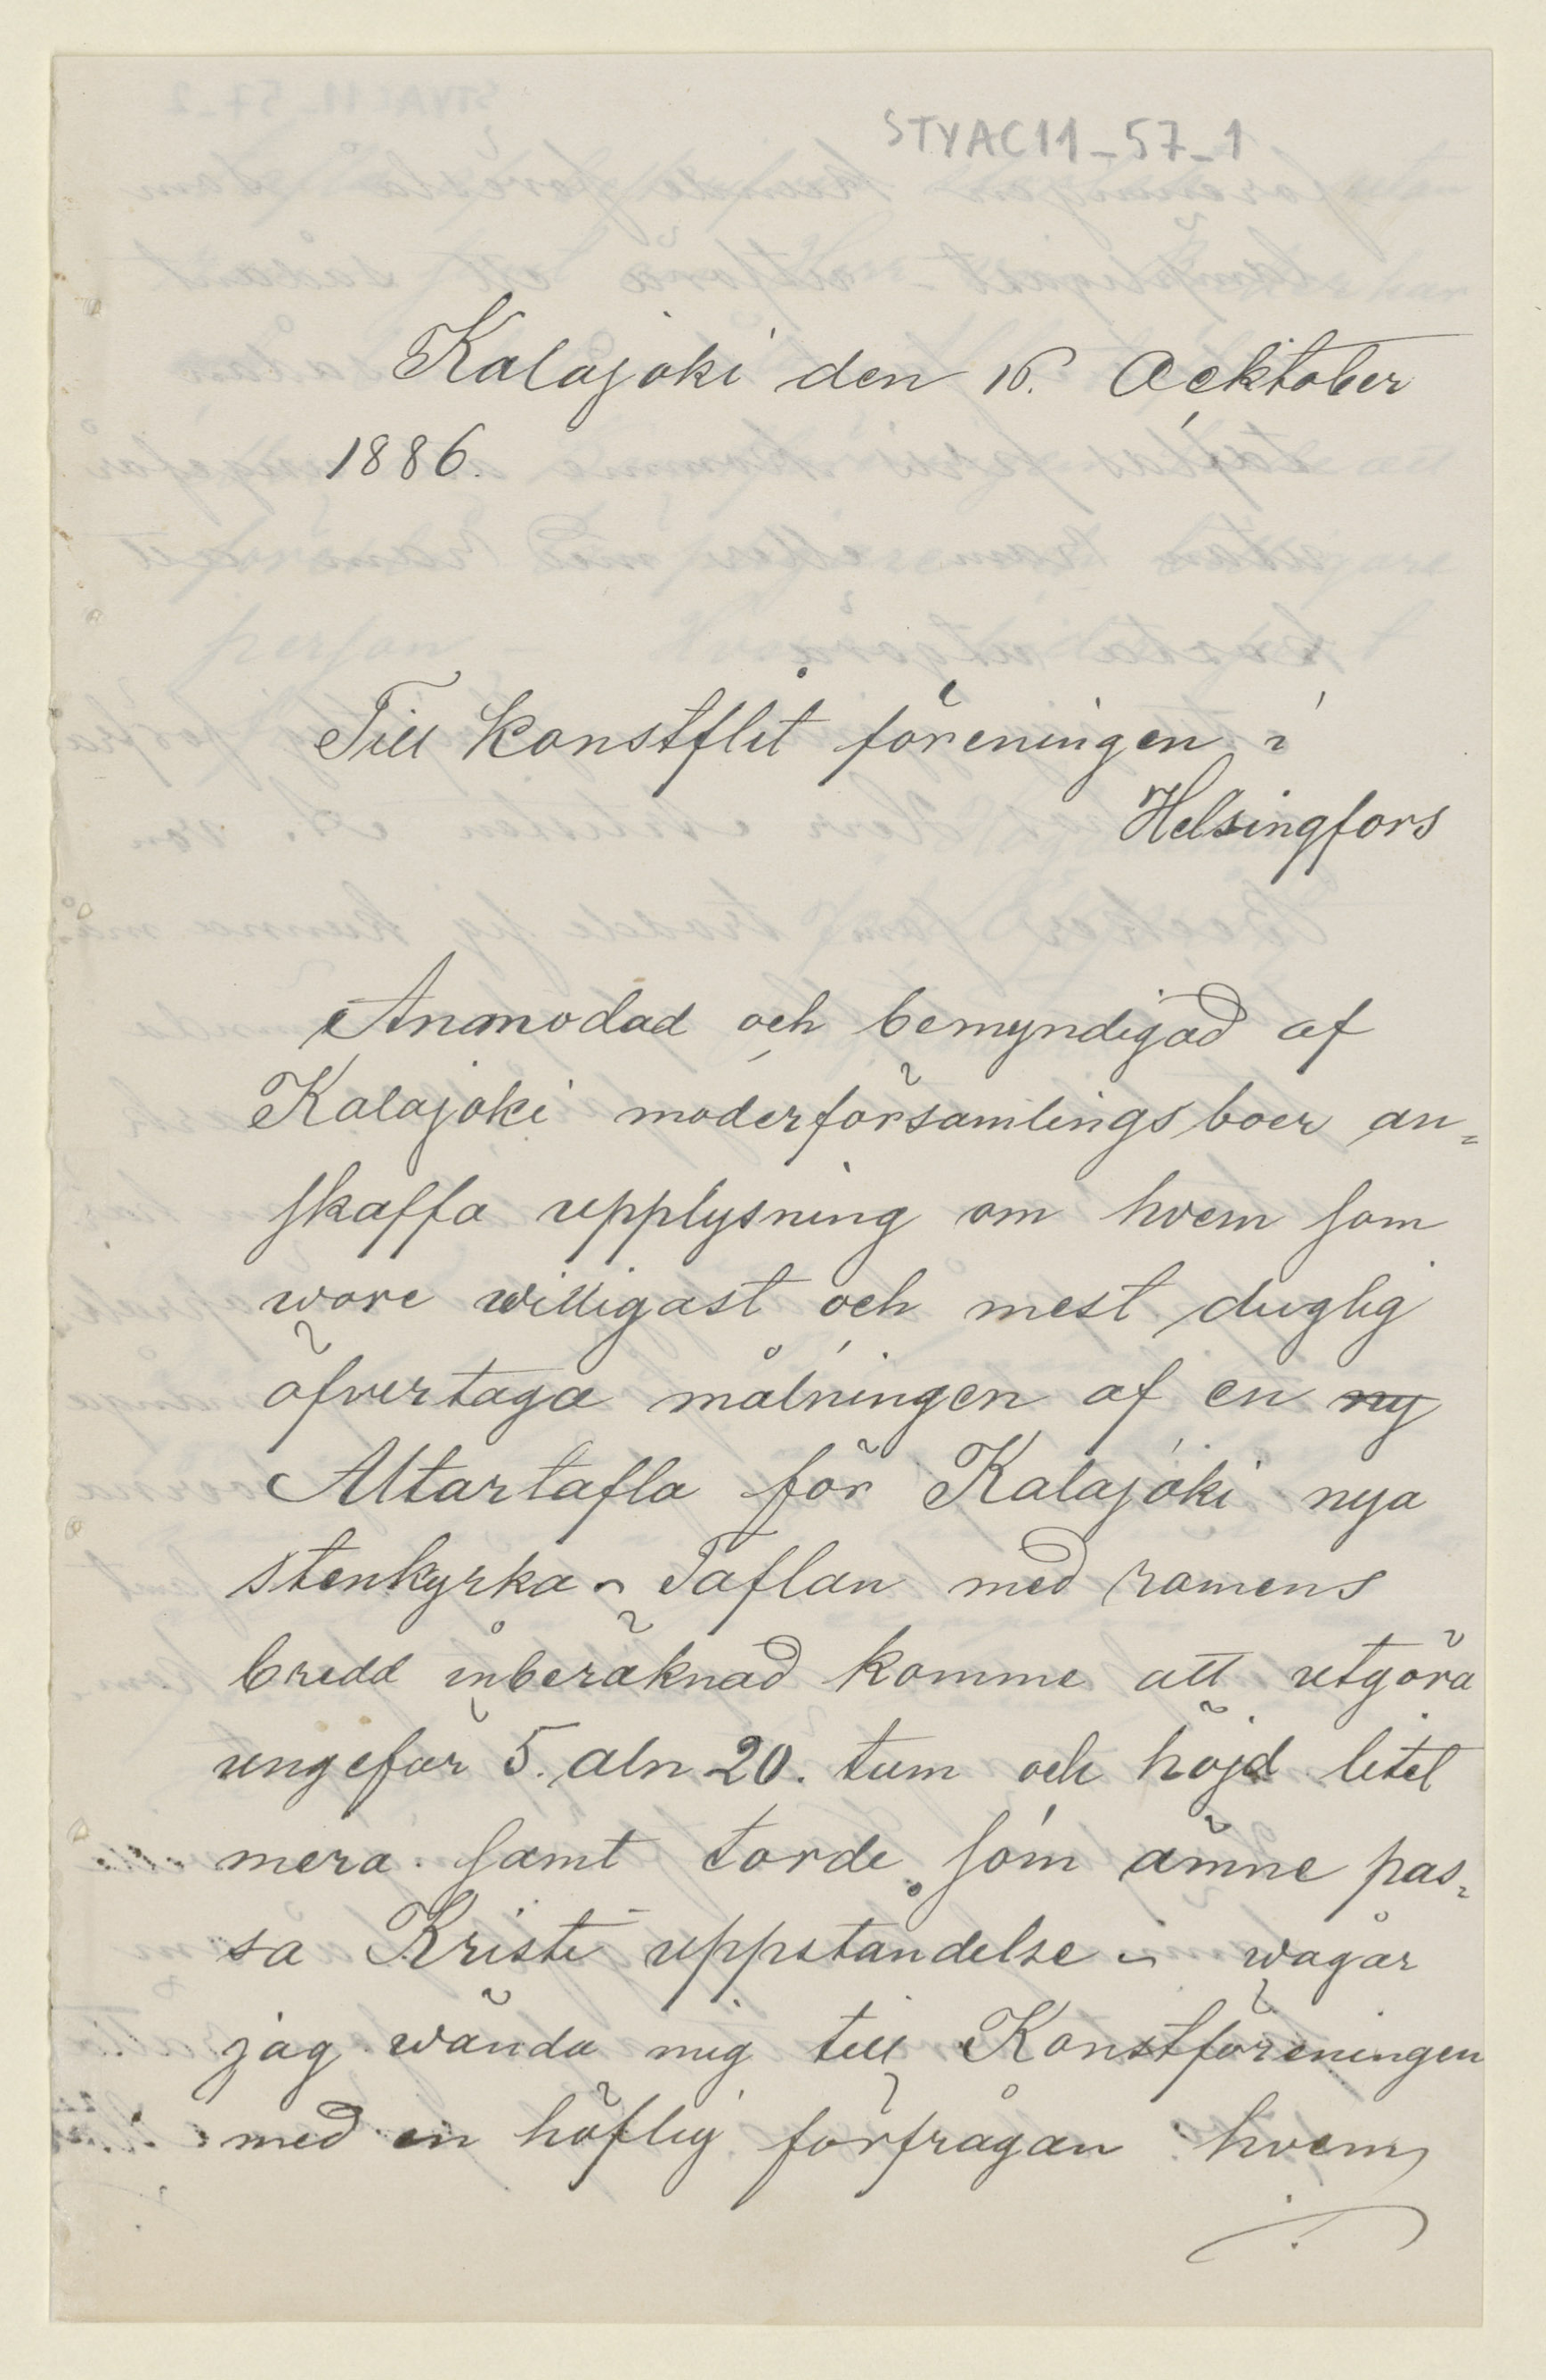 STYAC11_57_1
Kalajoki den 16. Ocktober
1886.
Till Konstflit föreningen i
Helsingfors
Anmodad och bemyndigad af
Kalajoki moderförsamlingsboer an=
skaffa upplysning om hvem som
wore willigast och mest duglig
öfvertaga målningen af en ny
Altartafla för Kalajoki nya
stenkyrka ~ Taflan med ramens
bredd inberäknad komme att utgöra
ungefär 5. aln 20. tum och höjd litet
mera. samt torde som ämne pas=
sa Kristi uppståndelse ~ wågar
jag wända mig till Konstföreningen
med en höflig förfrågan hvem